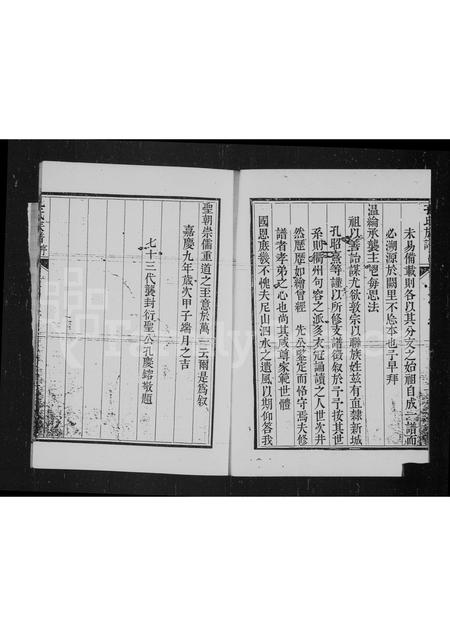 未易備載則各以其分支之始祖自成一譜而
必溯源於闕里不忘本也予早拜
温綸承襲主鬯每思法
祖以善詒謀尤欲敦宗以聯族姓茲有直隸新城
孔昭熹等謹以所修支譜徵叙於予予按其世
系則櫚州句容之派多衣冠誦讀之人世次井
然歷歷如繪曾經 先公鑒定而恪守焉夫修
譜者孝弟之心也尚其咸尊家範世體
國恩庶幾不愧夫尼山泗水之遺風以期仰答我
聖朝崇儒重道之至意於萬一云爾是為叙
嘉慶九年歲次甲子端月之吉
七十三代襲封衍聖公孔慶鎔敬題